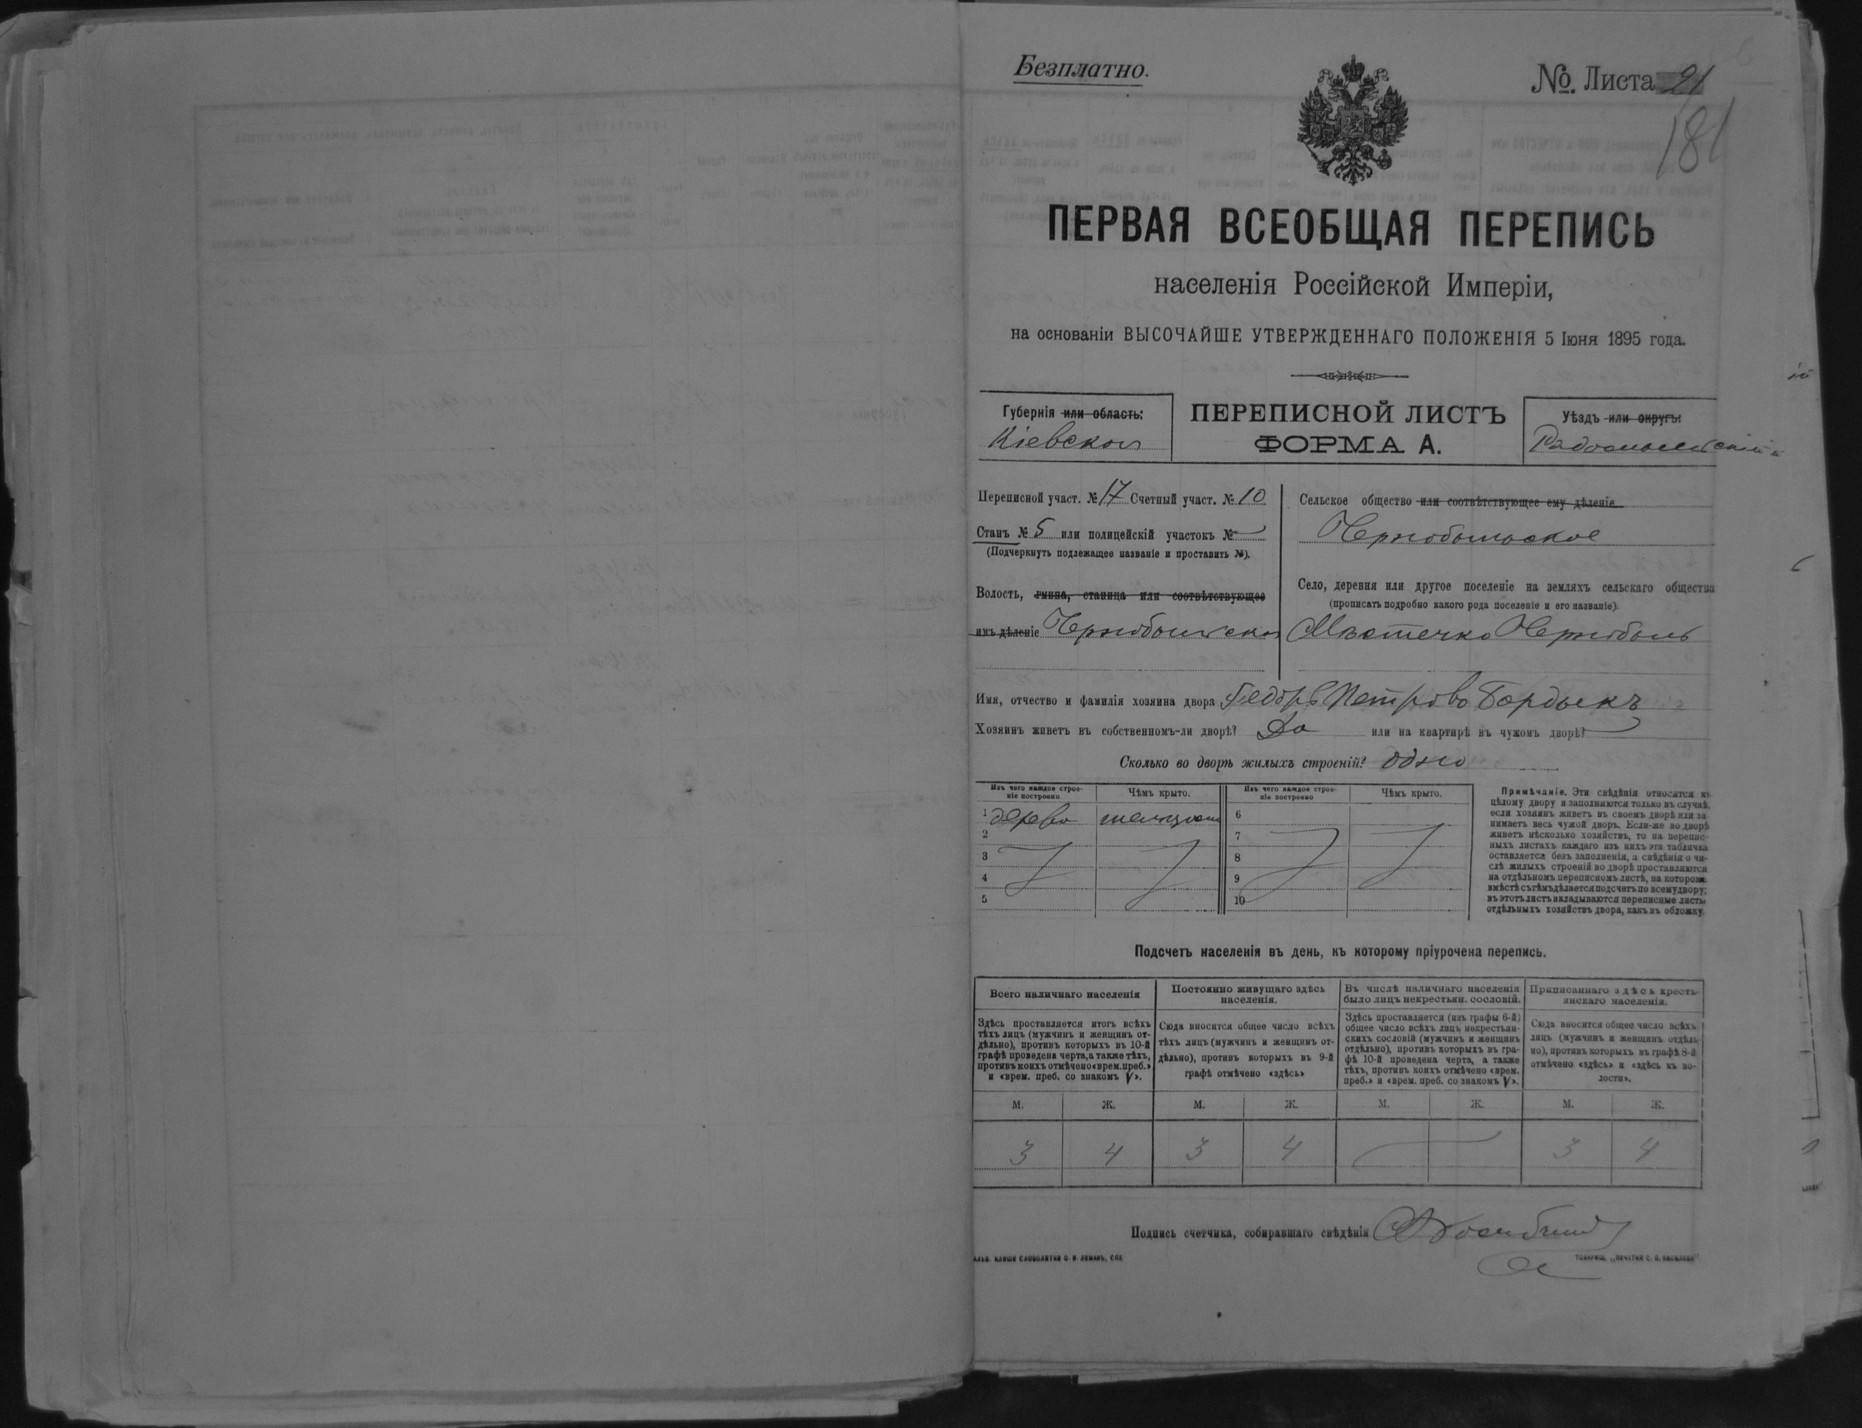 Безплатно.
№. Листа 21
181
ПЕРВАЯ ВСЕОБЩАЯ ПЕРЕПИСЬ
населенія Россійской Имперіи,
на основаніи ВЫСОЧАЙШЕ УТВЕРЖДЕННАГО ПОЛОЖЕНІЯ 5 Іюня 1895 года.
Губернія или область:
Кіевская
ПЕРЕПИСНОЙ ЛИСТЪ
ФОРМА А.
Уѣздъ или округъ:
Радомысльскій
Переписной участ. № 17 Счетный участ. № 10
Станъ № 5 или полицейскій участокъ №
(Подчеркнуть подлежащее названіе и проставить №).
Волость, гмина, станица или соотвѣтствующее
имъ дѣленіе Чернобыльская
Сельское общество или соотвѣтствующее ему дѣленіе
Чернобыльское
Село, деревня или другое поселеніе на земляхъ сельскаго общества
(прописать подробно какого рода поселеніе и его названіе)
Мѣстечко Чернобыль
Имя, отчество и фамилія хозяина двора Федоръ Петровъ Бордыкъ
Хозяинъ живетъ въ собственномъ-ли дворѣ? Да или на квартирѣ въ чужомъ дворѣ?
Сколько во дворѣ жилыхъ строеній? одно
Изъ чего каждое строе-
ніе построено
Чѣмъ крыто.
Изъ чего каждое строе-
ніе построено
Чѣмъ крыто.
1 дерево
6
2 7
3 8
4 9
5 10
Примѣчаніе. Эти свѣдѣнія относятся къ
цѣлому двору и заполняются только въ случаѣ,
если хозяинъ живетъ въ своемъ дворѣ или за-
нимаетъ весь чужой дворъ. Если-же во дворѣ
живетъ нѣсколько хозяйствъ, то на перепис-
ныхъ листахъ каждаго изъ нихъ эта табличка
оставляется безъ заполненія, а свѣдѣнія о чи-
слѣ жилыхъ строеній во дворѣ проставляются
на отдѣльномъ переписномъ листѣ, на которомъ
вмѣстѣ съ тѣмъ дѣлается подсчетъ по всему двору;
въ этотъ листъ вкладываются переписные листы
отдѣльныхъ хозяйствъ двора, какъ въ обложку.
Подсчетъ населенія въ день, къ которому пріурочена перепись.
Всего наличнаго населенія
Здѣсь проставляется итогъ всѣхъ
тѣхъ лицъ (мужчинъ и женщинъ от-
дѣльно), противъ которыхъ въ 10-й
графѣ проведена черта, а также тѣхъ,
противъ коихъ отмѣчено «врем. преб.»
и «врем. преб. со знакомъ V».
Постоянно живущаго здѣсь
населенія.
Сюда вносится общее число всѣхъ
тѣхъ лицъ (мужчинъ и женщинъ от-
дѣльно), противъ которыхъ въ 9-й
графѣ отмѣчено «здѣсь»
Въ числѣ наличнаго населенія
было лицъ некрестьян. сословій.
Здѣсь проставляется (изъ графы 6-й)
общее число всѣхъ лицъ некрестьян-
скихъ сословій (мужчинъ и женщинъ
отдѣльно), противъ которыхъ въ гра-
фѣ 10-й проведена черта, а также
тѣхъ, противъ коихъ отмѣчено «врем.
преб.» и «врем. преб. со знакомъ V».
Приписаннаго здѣсь кресть-
янскаго населенія.
Сюда вносится общее число всѣхъ
лицъ (мужчинъ и женщинъ отдѣль-
но), противъ которыхъ въ графѣ 8-й
отмѣчено «здѣсь» и «здѣсь къ во-
лости».
М. Ж. М. Ж. М. Ж. М. Ж.
3 4 3 4 3 4
Подпись счетчика, собиравшаго свѣдѣнія